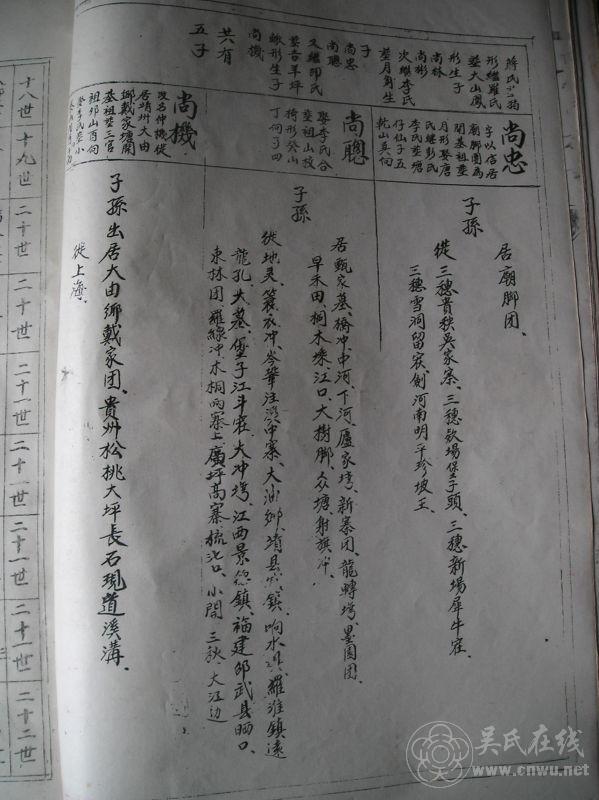 蔣氏
形繼羅氏
塟大山鳳
形生子
尚林
尚彬
次繼李氏
塟月角生
子
尚忠
尚聰
又繼邱氏
塟音羊坪
蚴形生子
尚機
共有
五子
尚忠
字以信居
廟脚團為
開基祖塟
月形娶唐
氏繼彭氏
李氏塟塘
仔仙子五
乾山巽向
子孫
居廟脚团、
徙三穗貴秧吳家寨、三穗款場堡子頭、三穗新場犀牛塘
三穗雪洞留寨、劍河南明平珍坡王
尚聰
娶李氏合
塟祖山杈
椅形癸山
丁向子四
子孫
居甄家墓、橋冲、中河、下河、廬家塆、新寨团、龍轉塆、墨園团、
早禾田、桐木㙡、江口、大樹脚、众塘、射旗冲、
徙地灵、簑衣冲、岑華注、湾冲寨、大油鄉、靖县、镇、响水、羅淮鎮遠
龍孔、大墓、堡子江斗寨、大冲塆、江西景德鎮、福建邵武县晒口、
東林团、羅線冲木桐两寨上、廣坪高寨、梳、口、小開、三秋、大江边
尚機
改名仲機徙
居靖州大由
鄉戴家塘開
基祖塟三官
祖邱山酉向
子孫出居大由鄉戴家团、貴州松桃大坪長石現道溪溝、
徙上海、
十八世
十九世
二十世
二十世
二十一世
二十一世
二十一世
二十一世
二十二世
吴氏在线
www.cnwu.net